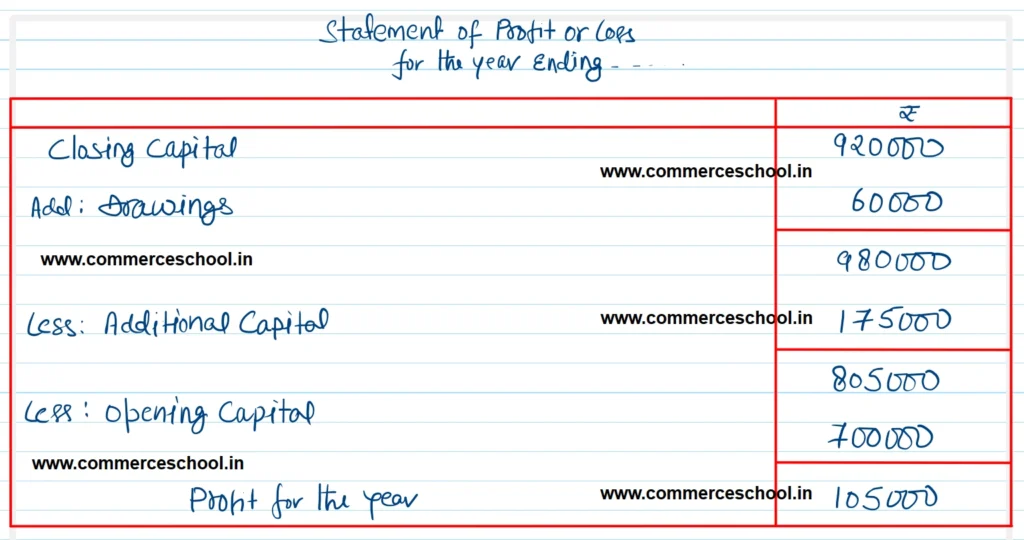 Statement of Profit or Loss
for the year Ending - - - -
₹
Closing Capital 920000
www.commerceschool.in
Add: Drawings 60000
www.commerceschool.in 980000
Less: Additional Capital www.commerceschool.in 175000
805000
Less: Opening Capital 700000
www.commerceschool.in
Profit for the year www.commerceschool.in 105000